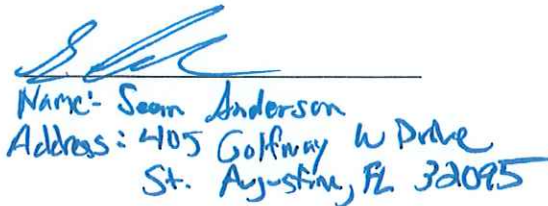 Name: Sean Anderson
Address: 405 Golfway W Drive
St. Augustine, FL 32095